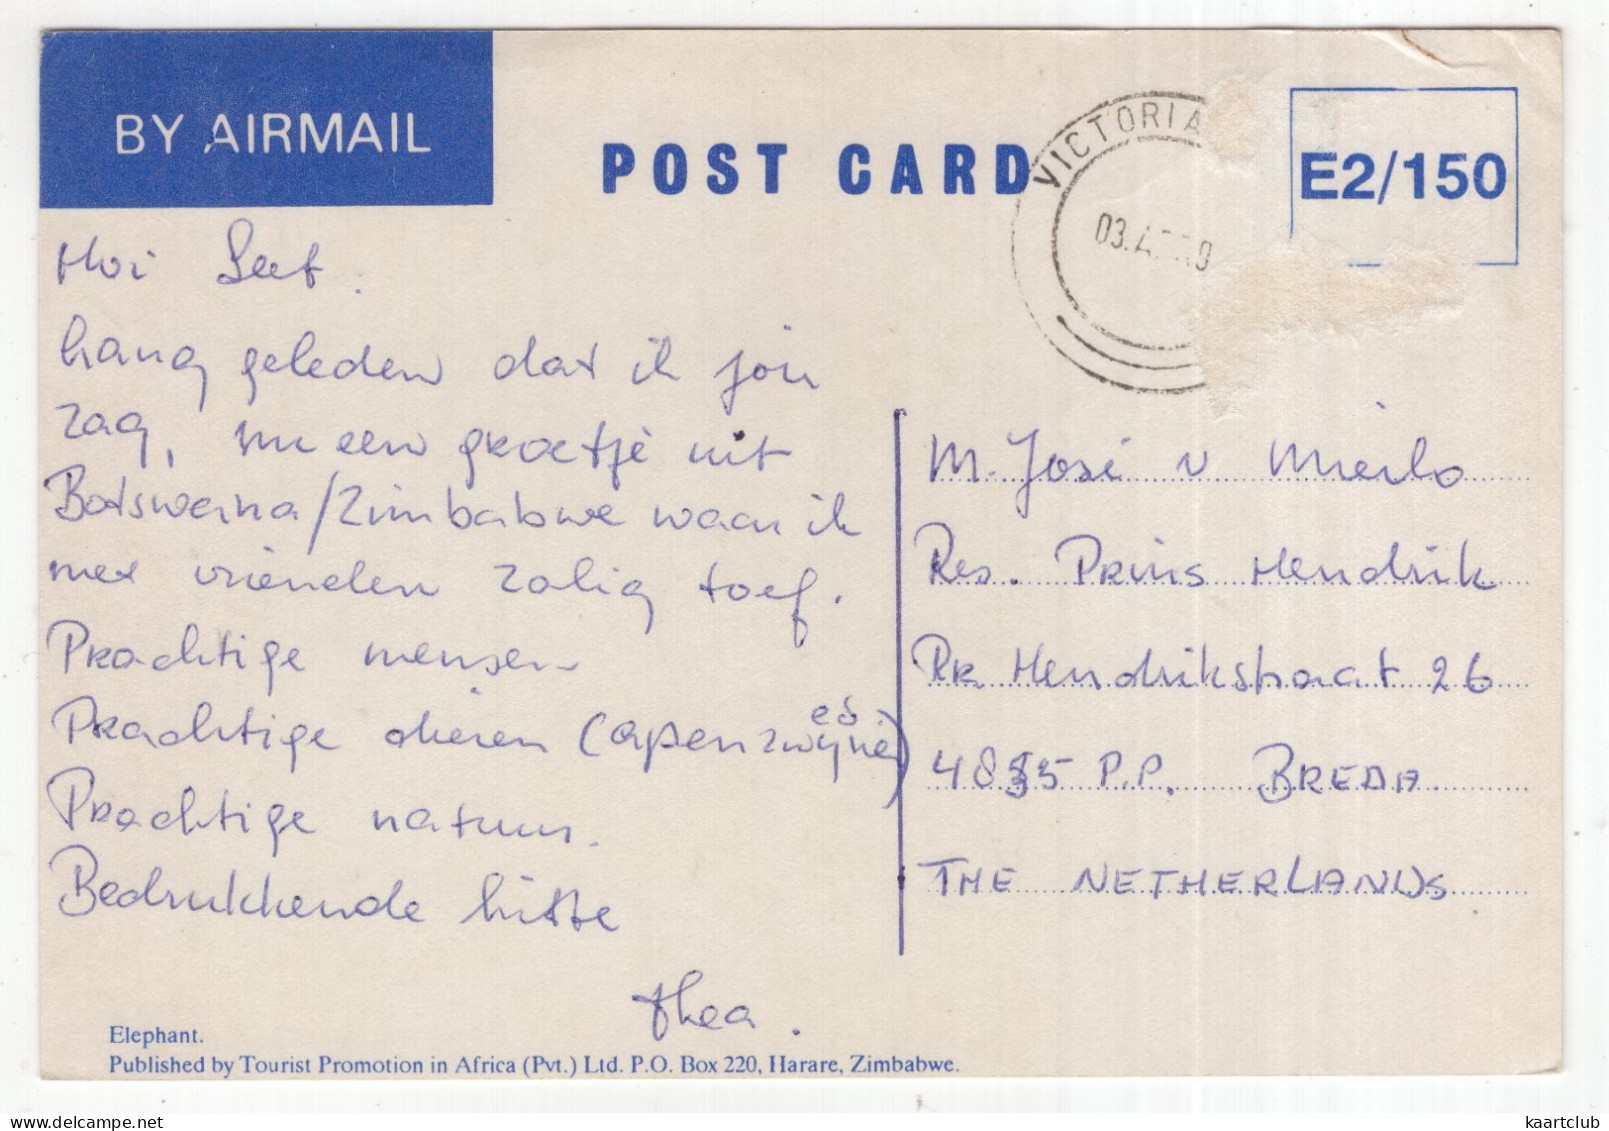 BY AIRMAIL
POST CARD
VICTORIA
E2/150
Hoi
lang geleden dat ik jou
zag, nu een groetje uit
Botswana/Zimbabwe waar ik
met vrienden zalig toef.
Prachtige mensen
Prachtige dieren (apen zwijnen)
Prachtige natuur.
Bedrukkende hitte
thea.
M. José v Mierlo
Res. Prins Hendrik
Pr Hendrikstraat 26
4835 P.P. BREDA
THE NETHERLANDS.
Elephant.
Published by Tourist Promotion in Africa (Pvt.) Ltd. P.O. Box 220, Harare, Zimbabwe.
kaartclub